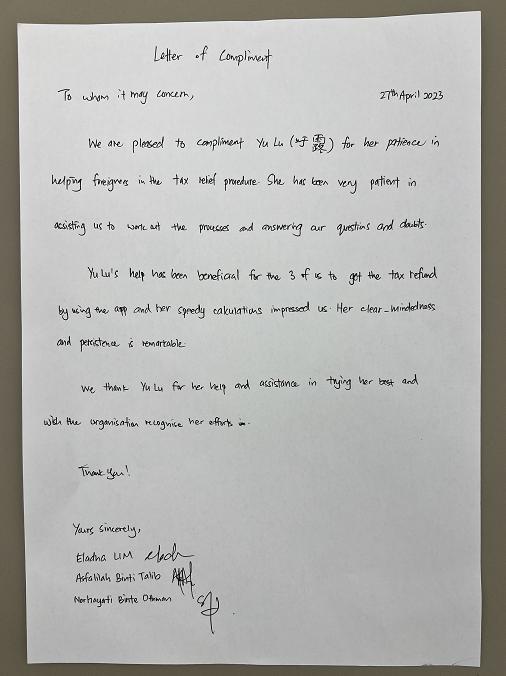 Letter of Compliment
To whom it may concern, 27th April 2023
We are pleased to compliment Yu Lu (于露) for her patience in
helping foreigners in the tax relief procedure. She has been very patient in
assisting us to work out the processes and answering our questions and doubts.
Yu Lu's help has been beneficial for the 3 of us to get the tax refund
by using the app and her speedy calculations impressed us. Her clear-mindedness
and persistence is remarkable.
We thank Yu Lu for her help and assistance in trying her best and
wish the organisation recognise her efforts
Thank you!
Yours sincerely,
Eladna LIM
Asfalilah Binti Talib
Norhayati Binte Othman